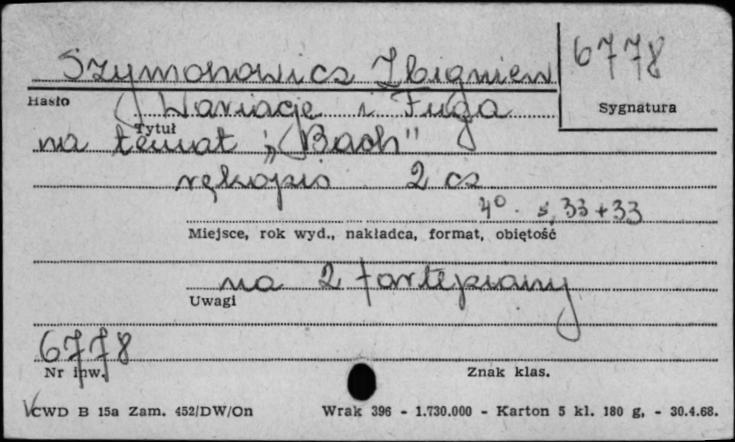 Szymonowicz Zbigniew
6778
Hasło
Sygnatura
Wariacje i Fuga
Tytuł
na temat „Bach"
rękopis 2 cz
4° s, 33+33
Miejsce, rok wyd., nakładca, format, obiętość
na 2 fortepiany
Uwagi
6778
Nr inw.
Znak klas.
CWD B 15a Zam. 452/DW/On Wrak 396 - 1.730.000 - Karton 5 kl. 180 g. - 30.4.68.